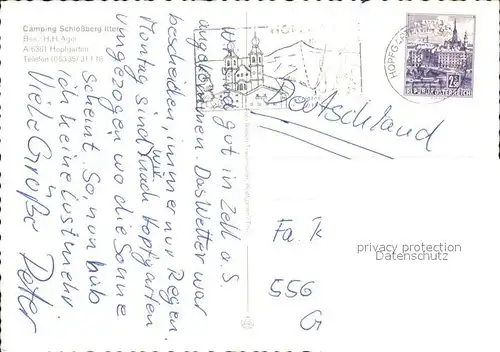 Camping Schloßberg Itter
Bes.: H.H. Ager
A-6301 Hopfgarten
Telefon (05335)
Wir sind gut in Zell a.S.
angekommen. Das Wetter war
bescheiden, immer nur Regen.
Montag sind wir nach Hopfgarten
umgezogen wo die Sonne
scheint. So, nun hab
ich keine Lust mehr
Viele Grüße Peter
HOPFG
REPUBLIK ÖSTERREICH
Deutschland
Fa.
privacy protection
Datenschutz
556